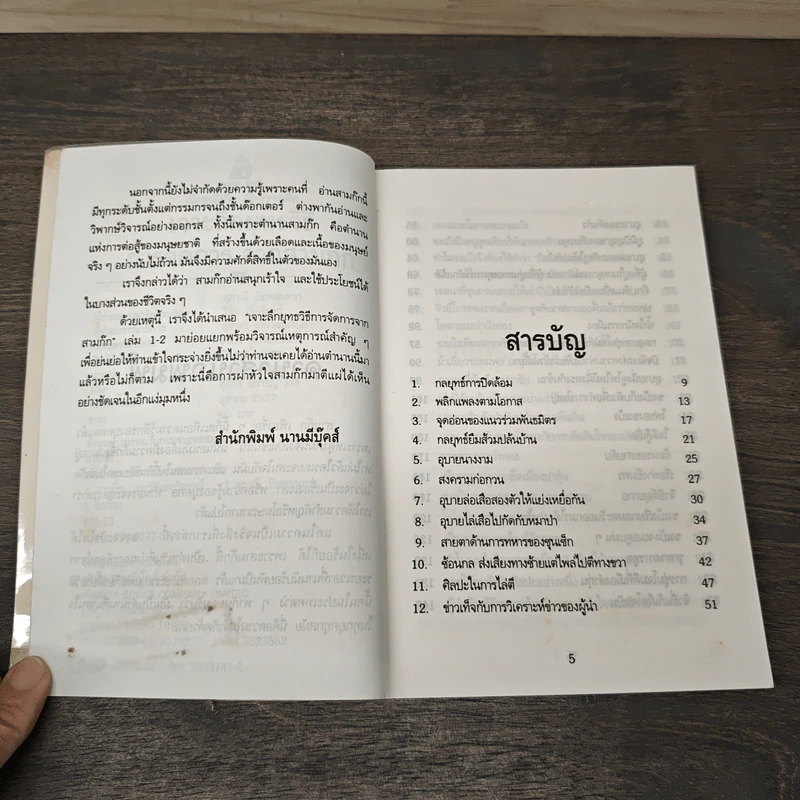 นอกจากนี้ยังไม่จำกัดด้วยความรู้เพราะคนที่ อ่านสามก๊กนี้
มีทุกระดับชั้นตั้งแต่กรรมกรจนถึงชั้นด๊อกเตอร์ ต่างพากันอ่านและ
วิพากษ์วิจารณ์อย่างออกรส ทั้งนี้เพราะตำนานสามก๊ก คือตำนาน
แห่งการต่อสู้ของมนุษยชาติ ที่สร้างขึ้นด้วยเลือดและเนื้อของมนุษย์
จริง ๆ อย่างนับไม่ถ้วน มันจึงมีความศักดิ์สิทธิ์ในตัวของมันเอง
เราจึงกล่าวได้ว่า สามก๊กอ่านสนุกเร้าใจ และใช้ประโยชน์ได้
ในบางส่วนของชีวิตจริง ๆ
ด้วยเหตุนี้ เราจึงได้นำเสนอ "เจาะลึกยุทธวิธีการจัดการจาก
สามก๊ก" เล่ม 1-2 มาย่อยแยกพร้อมวิจารณ์เหตุการณ์สำคัญ ๆ
เพื่อย่นย่อให้ท่านเข้าใจกระจ่างยิ่งขึ้นไม่ว่าท่านจะเคยได้อ่านตำนานนี้มา
แล้วหรือไม่ก็ตาม เพราะนี่คือการผ่าหัวใจสามก๊กมาตีแผ่ได้เห็น
อย่างชัดเจนในอีกแง่มุมหนึ่ง
สำนักพิมพ์ นานมีบุ๊คส์
สารบัญ
1. กลยุทธ์การปิดล้อม 9
2. พลิกแพลงตามโอกาส 13
3. จุดอ่อนของแนวร่วมพันธมิตร 17
4. กลยุทธ์ยืมส้วมปล้นบ้าน 21
5. อุบายนางงาม 25
6. สงครามก่อกวน 27
7. อุบายล่อเสือสองตัวให้แย่งเหยื่อกัน 30
8. อุบายไล่เสือไปกัดกับหมาป่า 34
9. สายตาด้านการทหารของขุนเช็ก 37
10. ซ้อนกล ส่งเสียงทางซ้ายแต่ไพล่ไปตีทางขวา 42
11. ศิลปะในการไล่ตี 47
12. ข่าวเท็จกับการวิเคราะห์ข่าวของผู้นำ 51
5